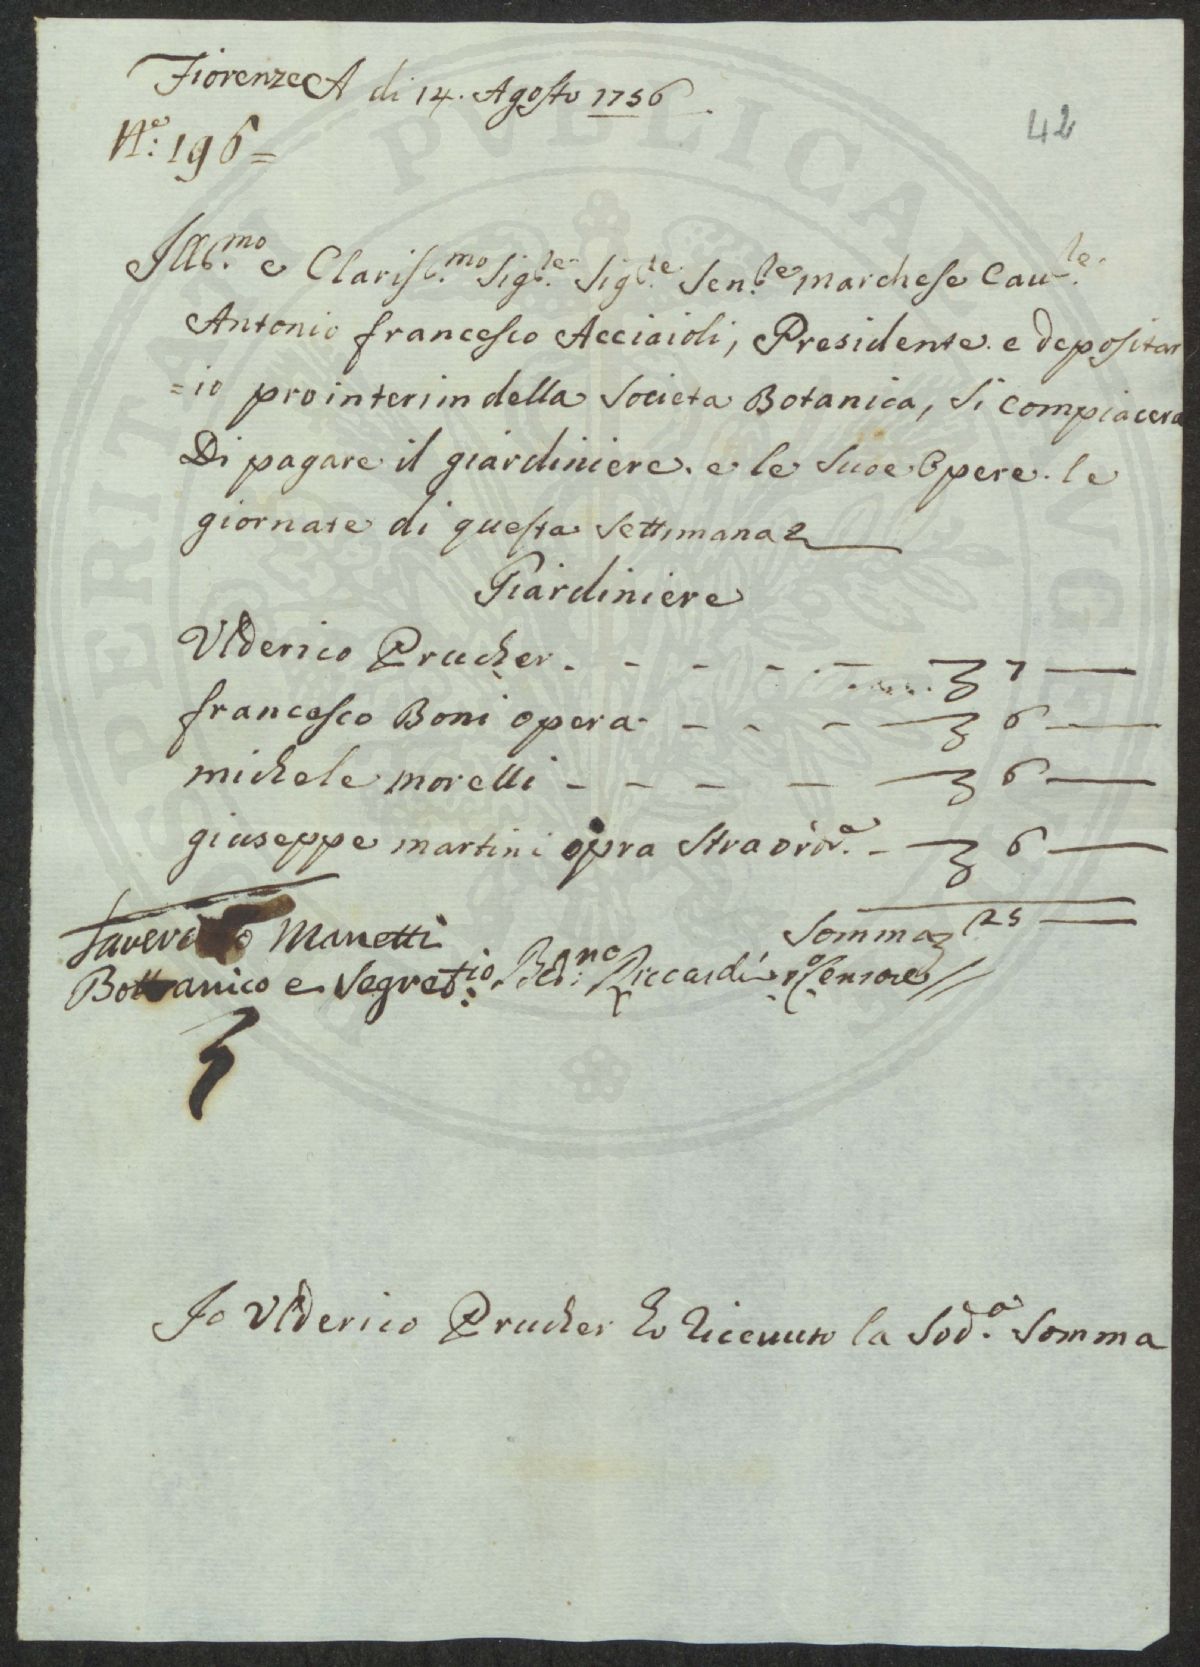 Fiorenze A di 14. Agosto 1756
42
N.º 196 =
Ill.mo e Clariss.mo Sig.le Sig.le Sen.le marchese Cau.le
Antonio francesco Acciaioli, Presidente e depositar
=io pro interim della Societa Botanica, Si compiacera
Di pagare il giardiniere e le Sue Opere le
giornate di questa Settimana
Giardiniere
Ulderico Prucher 7
francesco Boni opera 6
michele morelli 6
giuseppe martini opra Straord.a 6
Somma 25
Saverio Manetti
Bottanico e Segret.io Bern.no Riccardi Censore
Io Ulderico Prucher ho riceuuto la Sod.a Somma